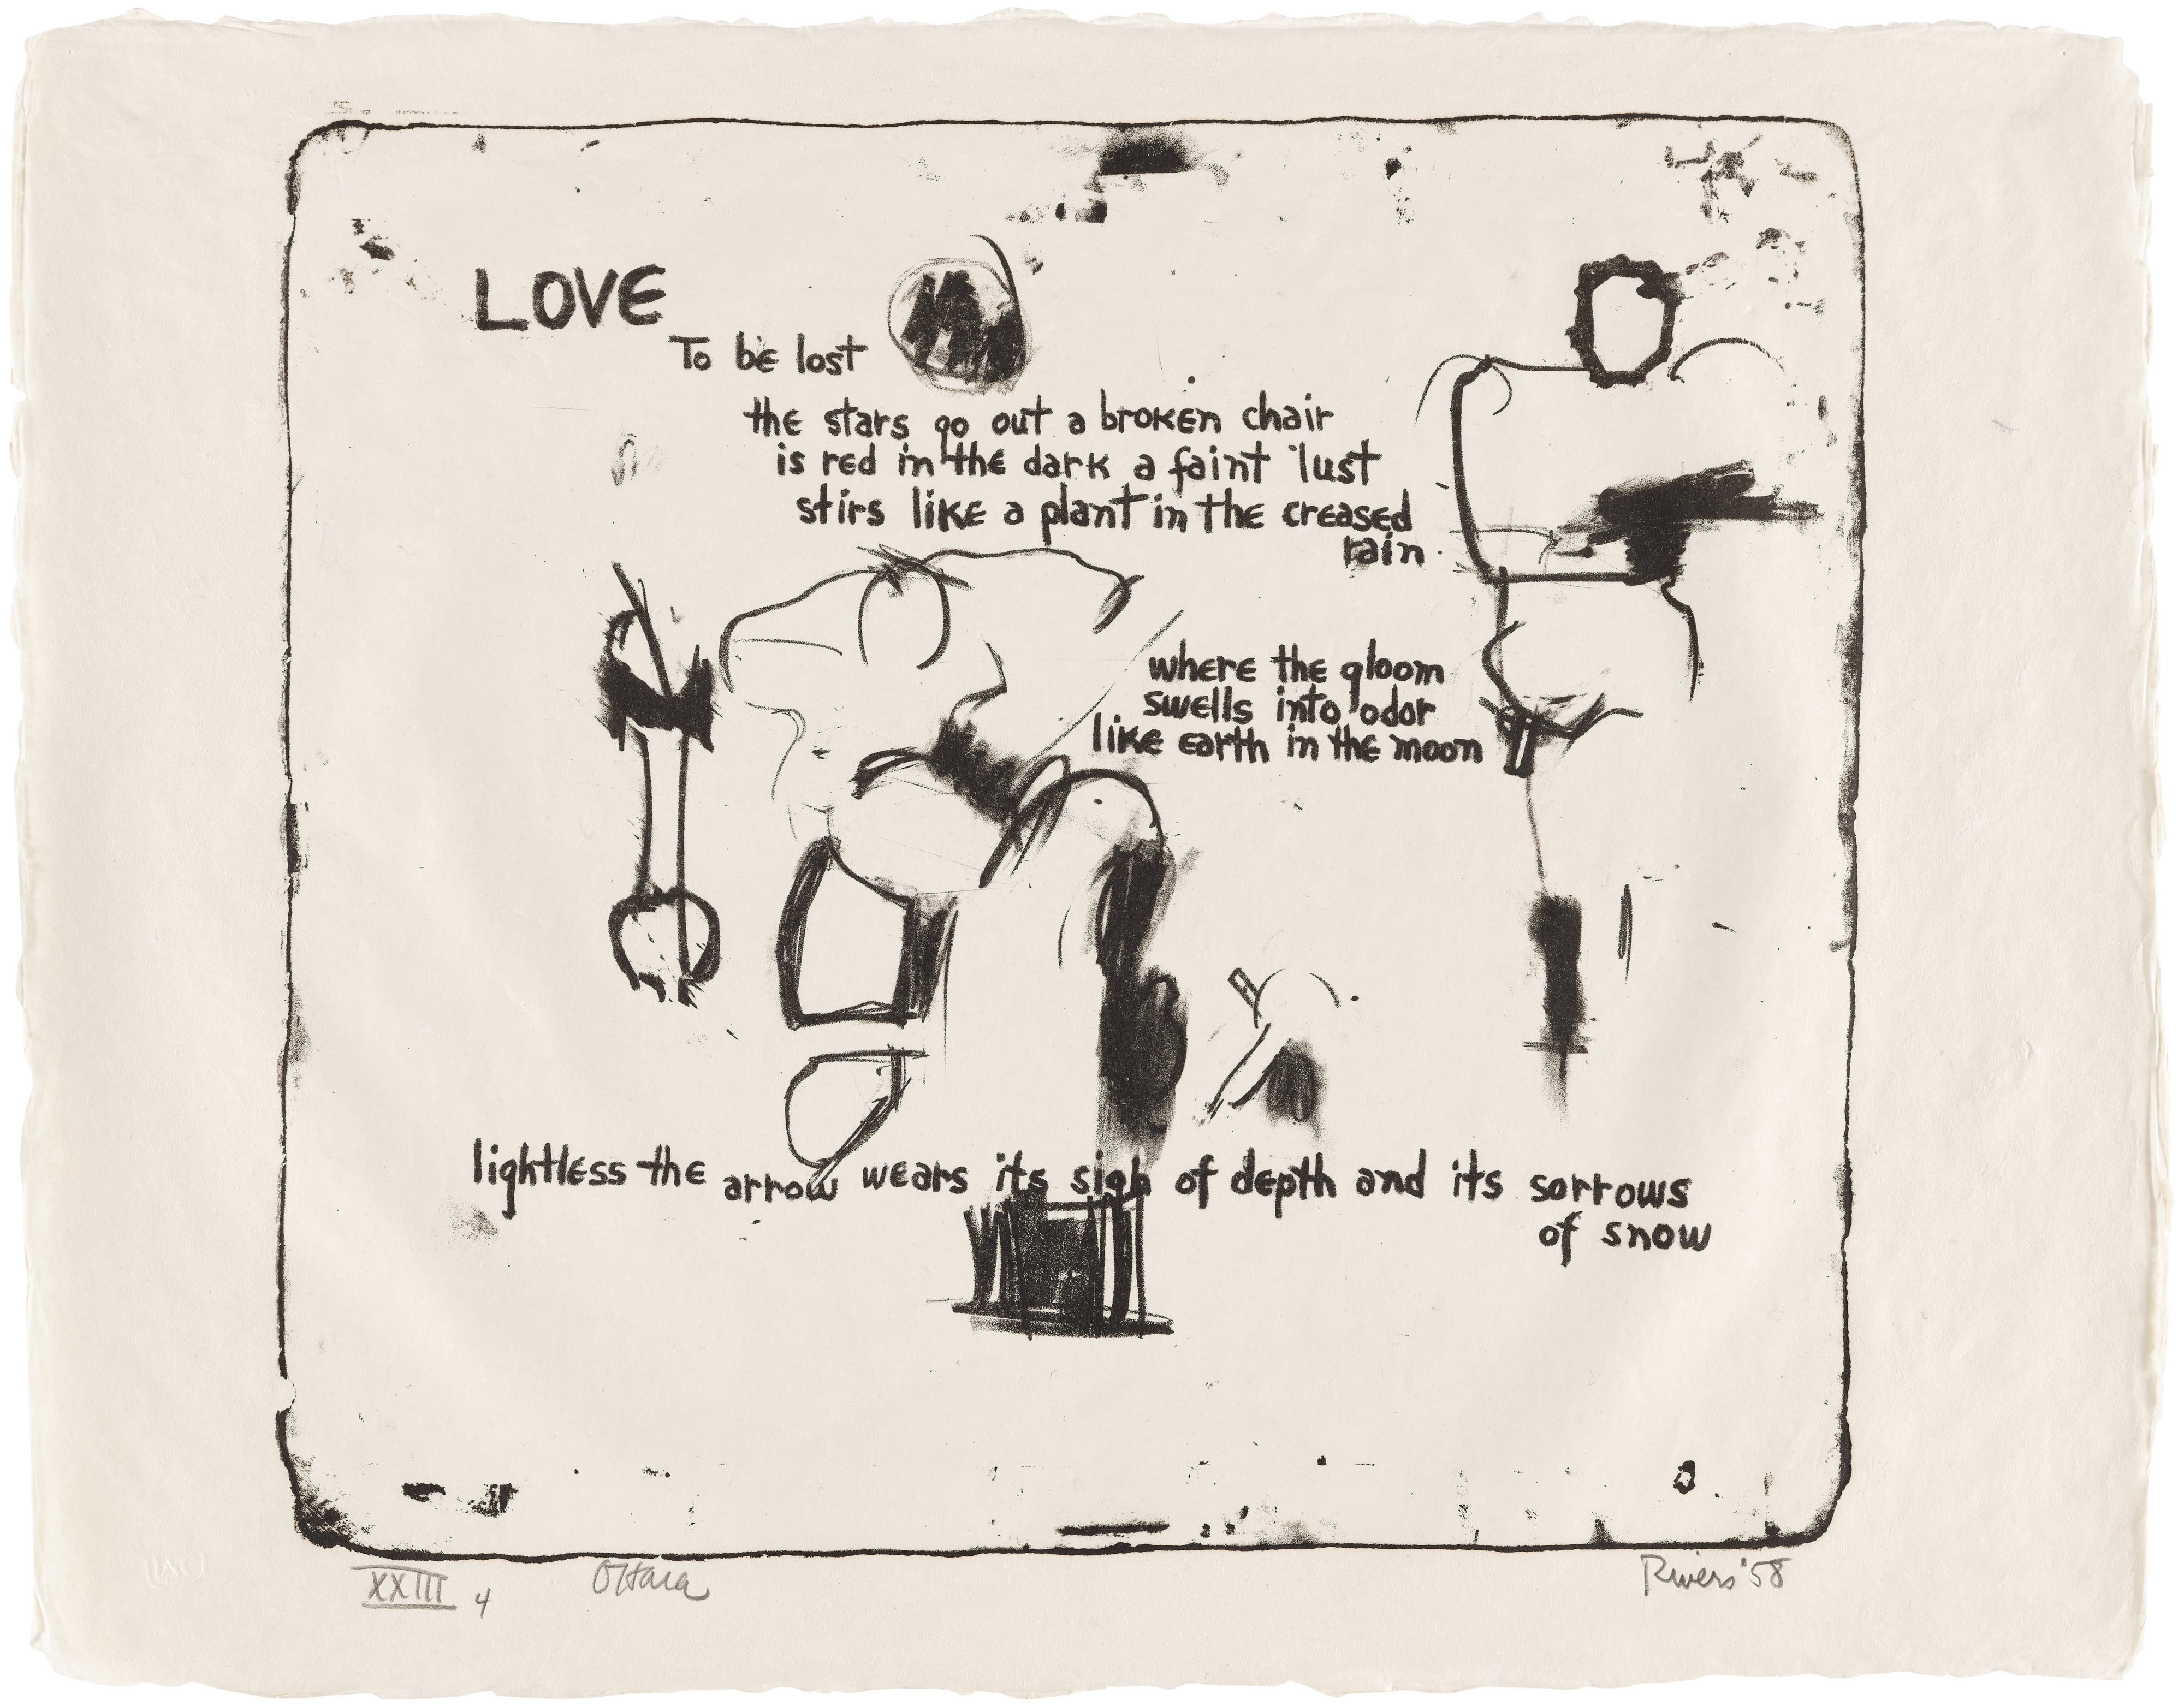 LOVE
To be lost
the stars go out a broken chair
is red in the dark a faint lust
stirs like a plant in the creased
rain.
where the gloom
swells into odor
like earth in the moon
lightless the arrow wears its sigh of depth and its sorrows
of snow
XXIII 4 O'Hara Rivers '58